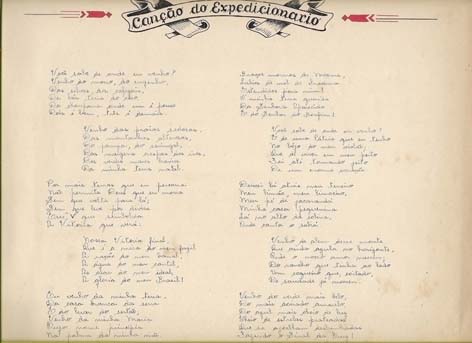 Canção do Expedicionario
Você sabe de onde eu venho?
Venho do morro, do engenho,
Das selvas, dos cafezais,
Da boa terra do coco,
Da choupana onde um é pouco
Dois é bom, três é demais.
Venho das praias sedosas,
Das montanhas alterosas,
Do pampa, do seringal,
Das margens crespas dos rios,
Dos verdes mares bravios
Da minha terra natal.
Por mais terras que eu percorra
Não permita Deus que eu morra
Sem que volte para lá;
Sem que leve por divisa
Esse V que simboliza
A Vitoria que virá:
Nossa Vitoria final,
Que é a mira do meu fuzil
A ração do meu bornal,
A água do meu cantil,
As asas do meu ideal,
A gloria do meu Brasil!
Eu venho da minha terra,
Da casa branca da serra
E do luar do sertão;
Venho da minha Maria
Cujo nome principia
Na palma da minha mão.
Braços mornos de Moema,
Labios de mel de Iracema
Estendidos para mim!
Ó minha terra querida
Da Senhora Aparecida
E do Senhor do Bonfim!
Você sabe de onde eu venho?
É de uma Pátria que eu tenho
No bôjo do meu violão;
Que de viver em meu peito
Foi até tomando jeito
De um enorme coração.
Deixei lá atrás meu terreno
Meu limão, meu limoeiro,
Meu pé de jacarandá
Minha casa pequenina
Lá no alto da colina,
Onde canta o sabiá.
Venho do além desse monte
Que ainda azula no horizonte,
Onde o nosso amor nasceu;
Do rancho que tinha ao lado
Um coqueiro que, coitado,
De saudade já morreu.
Venho do verde mais belo,
Do mais dourado amarelo,
Do azul mais cheio de luz
Cheio de estrelas prateadas
Que se ajoelham deslumbradas
Fazendo o Sinal da Cruz!